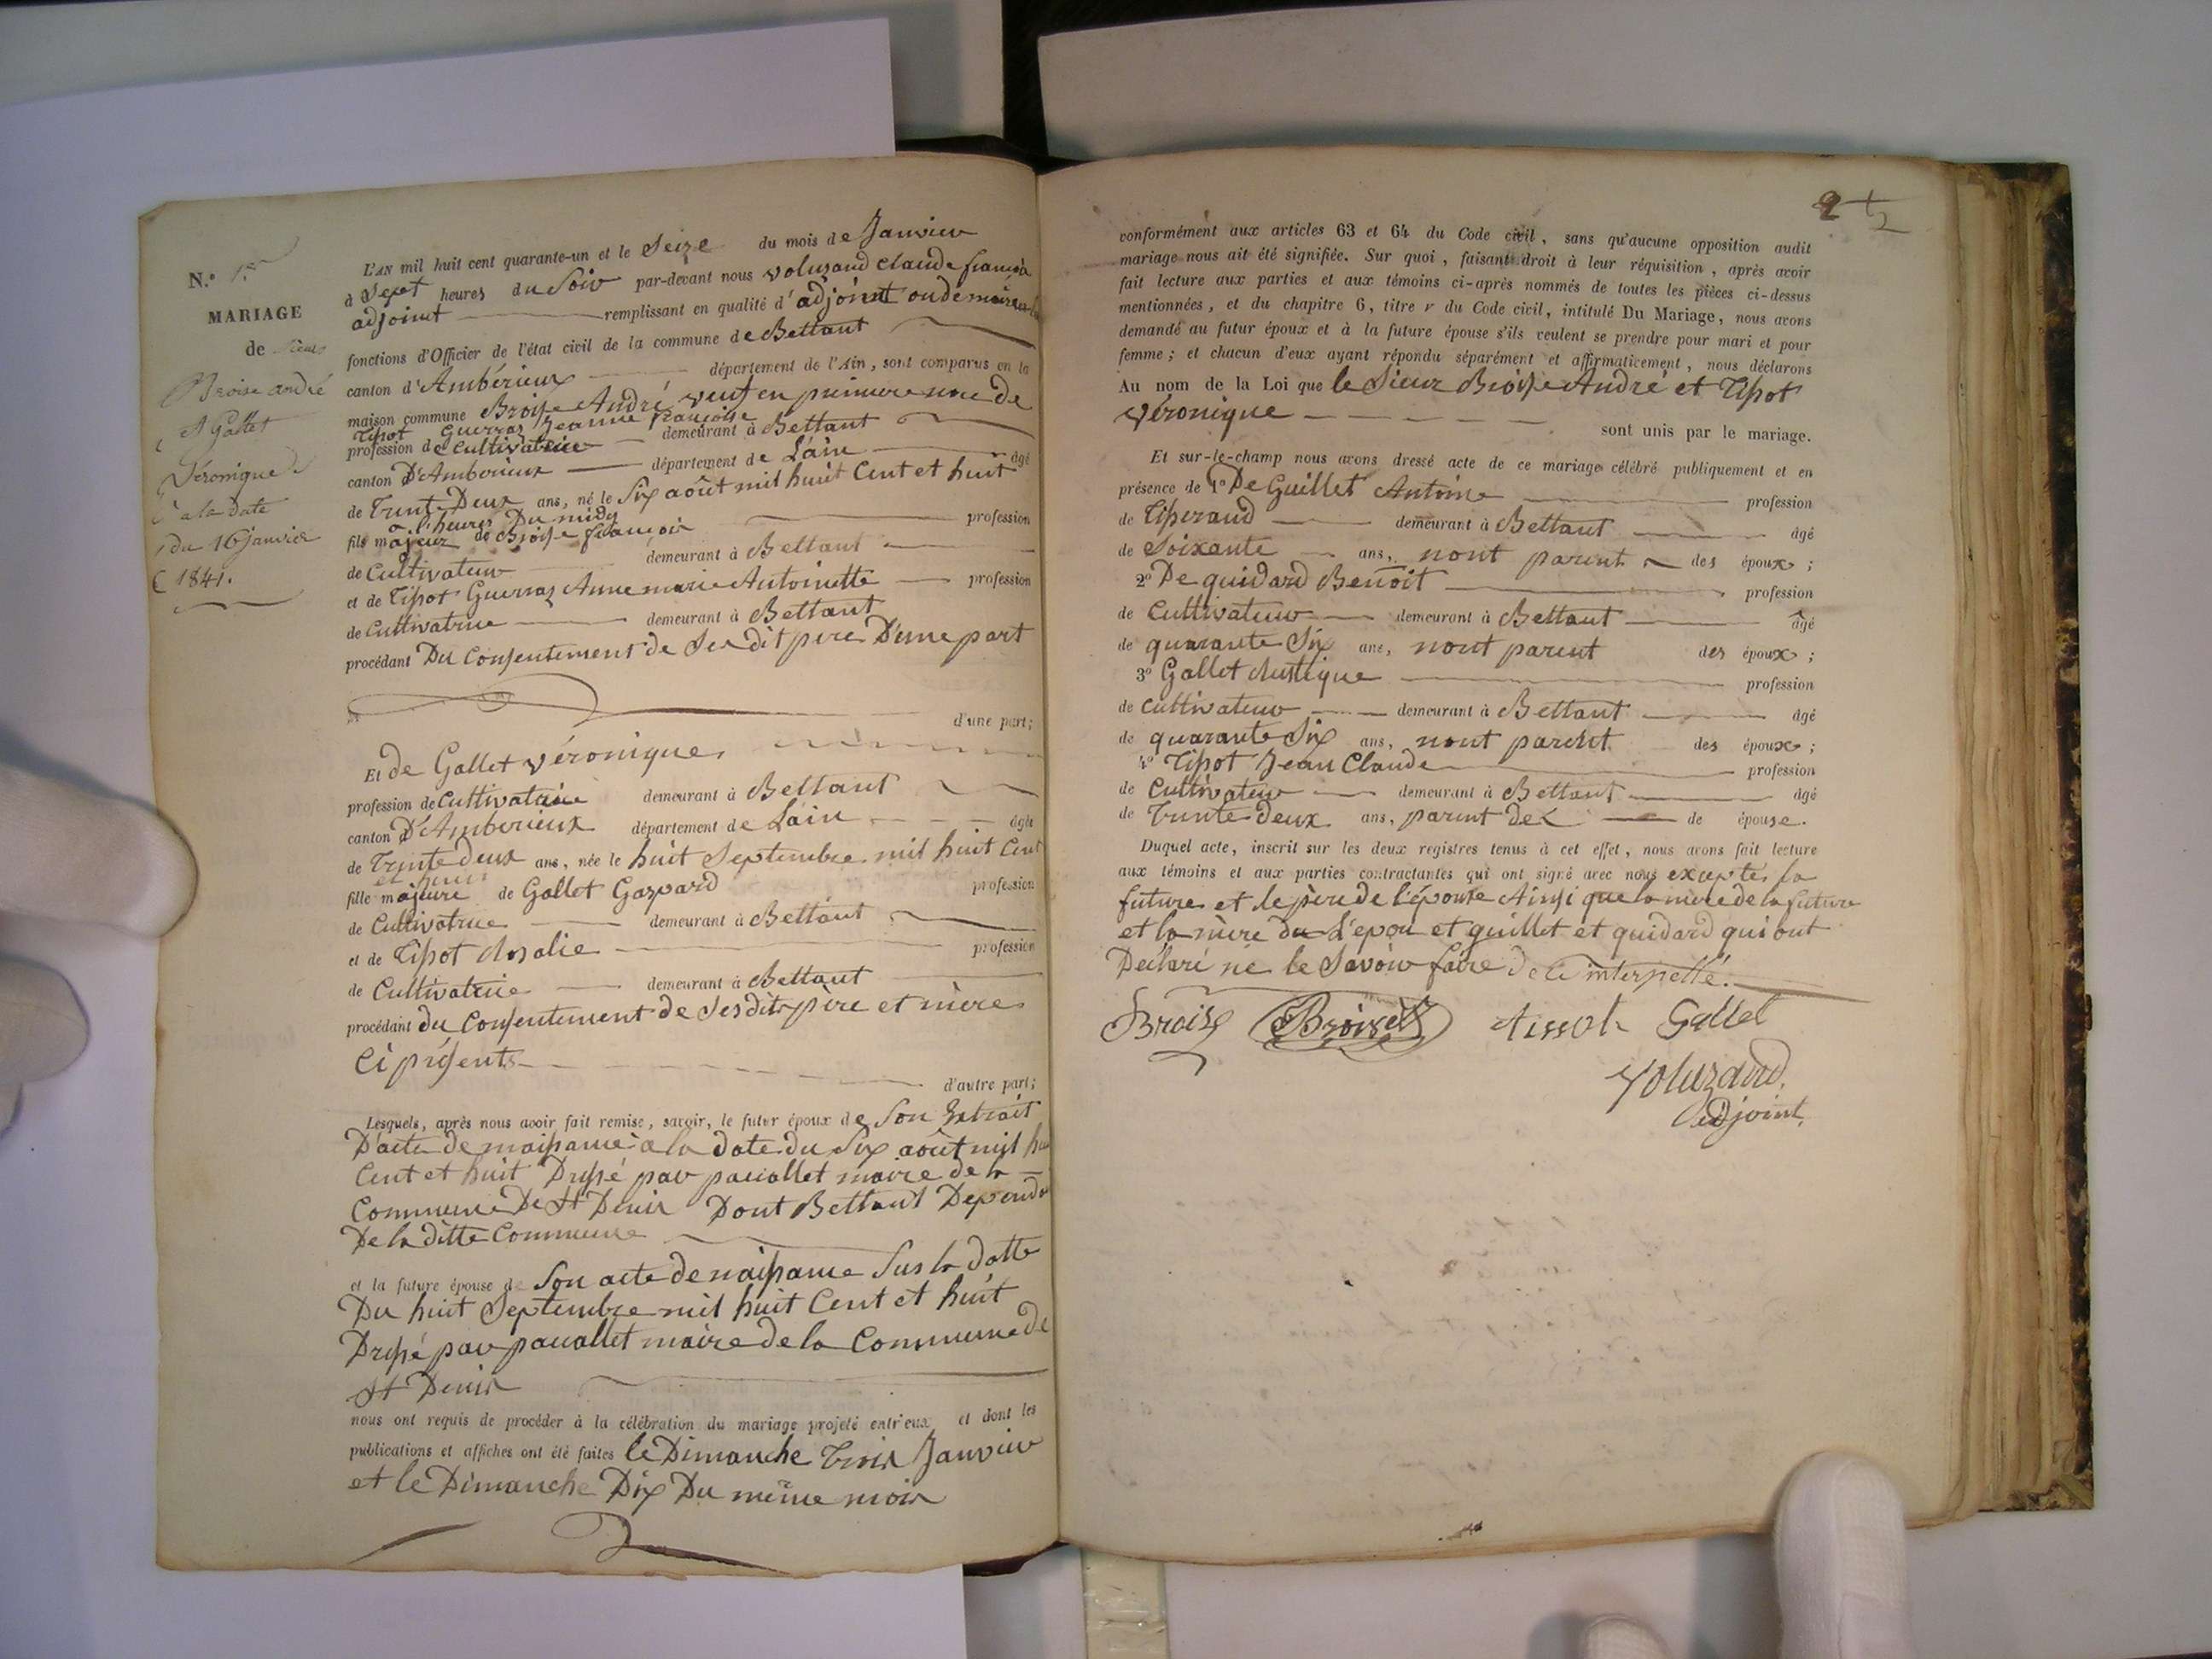 N.º 1er
MARIAGE
de Sieur
Broise andré
et Gallet
Véronique
à la date
du 16 janvier
1841.
L'AN mil huit cent quarante-un et le Seize du mois de Janvier
à Sept heures du Soir par-devant nous voluzand claude françois
adjoint remplissant en qualité d'adjoint oudemaire
fonctions d'Officier de l'état civil de la commune de Bettant
canton d'Ambérieux département de l'Ain, sont comparus en la
maison commune Broisse André veuf en premiere noce de
Tissot Guerraz Jeanne françoise
profession de Cultivatrice demeurant à Bettant
canton D'Amberieux département de L'ain âgé
de Trente Deux ans, né le Six août mil huit Cent et huit
à l'heures Du midy
fils majeur de Broisse françois profession
de Cultivateur demeurant à Bettant
et de Tissot Guerraz Anne marie Antoinette profession
de Cultivatrice demeurant à Bettant
procédant Du Consentement de Ses dit pere D'une part
d'une part;
Et de Gallet véronique
profession de Cultivatrice demeurant à Bettant
canton D'Amberieux département de Lain âgée
de Trente deux ans, née le huit Septembre mil huit Cent
et huit
fille majeure de Gallet Gaspard profession
de Cultivatrice demeurant à Bettant
et de Tissot Rosalie profession
de Cultivatrice demeurant à Bettant
procédant du Consentement de Ses dits père et mère
Ci présents
d'autre part;
Lesquels, après nous avoir fait remise, savoir, le futur époux de Son Extrait
D'acte de naissance à la date du Six août mil huit
Cent et huit Dressé par pauallet maire de la
Commune De St Denis Dont Bettant Depend
De la ditte Commune
et la future épouse de Son acte de naissance Sus la datte
Du huit Septembre mil huit Cent et huit
Dressé par pauallet maire de la Commune de
St Denis
nous ont requis de procéder à la célébration du mariage projeté entr'eux et dont les
publications et affiches ont été faites le Dimanche Trois Janvier
et le Dimanche Dix Du même mois
2
conformément aux articles 63 et 64 du Code civil, sans qu'aucune opposition audit
mariage nous ait été signifiée. Sur quoi, faisant droit à leur réquisition, après avoir
fait lecture aux parties et aux témoins ci-après nommés de toutes les pièces ci-dessus
mentionnées, et du chapitre 6, titre v du Code civil, intitulé Du Mariage, nous avons
demandé au futur époux et à la future épouse s'ils veulent se prendre pour mari et pour
femme; et chacun d'eux ayant répondu séparément et affirmativement, nous déclarons
Au nom de la Loi que le Sieur Broisse André et Tissot
véronique
sont unis par le mariage.
Et sur-le-champ nous avons dressé acte de ce mariage célébré publiquement et en
présence de 1º De Guillet Antoine profession
de Tisserand demeurant à Bettant âgé
de Soixante ans, nont parent des époux;
2º De guidard Benoit profession
de Cultivateur demeurant à Bettant âgé
de quarante Six ans, nont parent des époux;
3º Gallet Rustique profession
de cultivateur demeurant à Bettant âgé
de quarante Six ans, nont parent des époux;
4º Tissot Jean Claude profession
de Cultivateur demeurant à Bettant âgé
de Trente deux ans, parent de L de épouse.
Duquel acte, inscrit sur les deux registres tenus à cet effet, nous avons fait lecture
aux témoins et aux parties contractantes qui ont signé avec nous exceptés la
future et le père de l'épouse Ainsi que la mère de la future
et la mère du L'epou et guillet et guidard qui ont
Declaré ne le Savoir faire de ce interpellé.
Broise Broise Tissot Gallet
Voluzand,
adjoint,